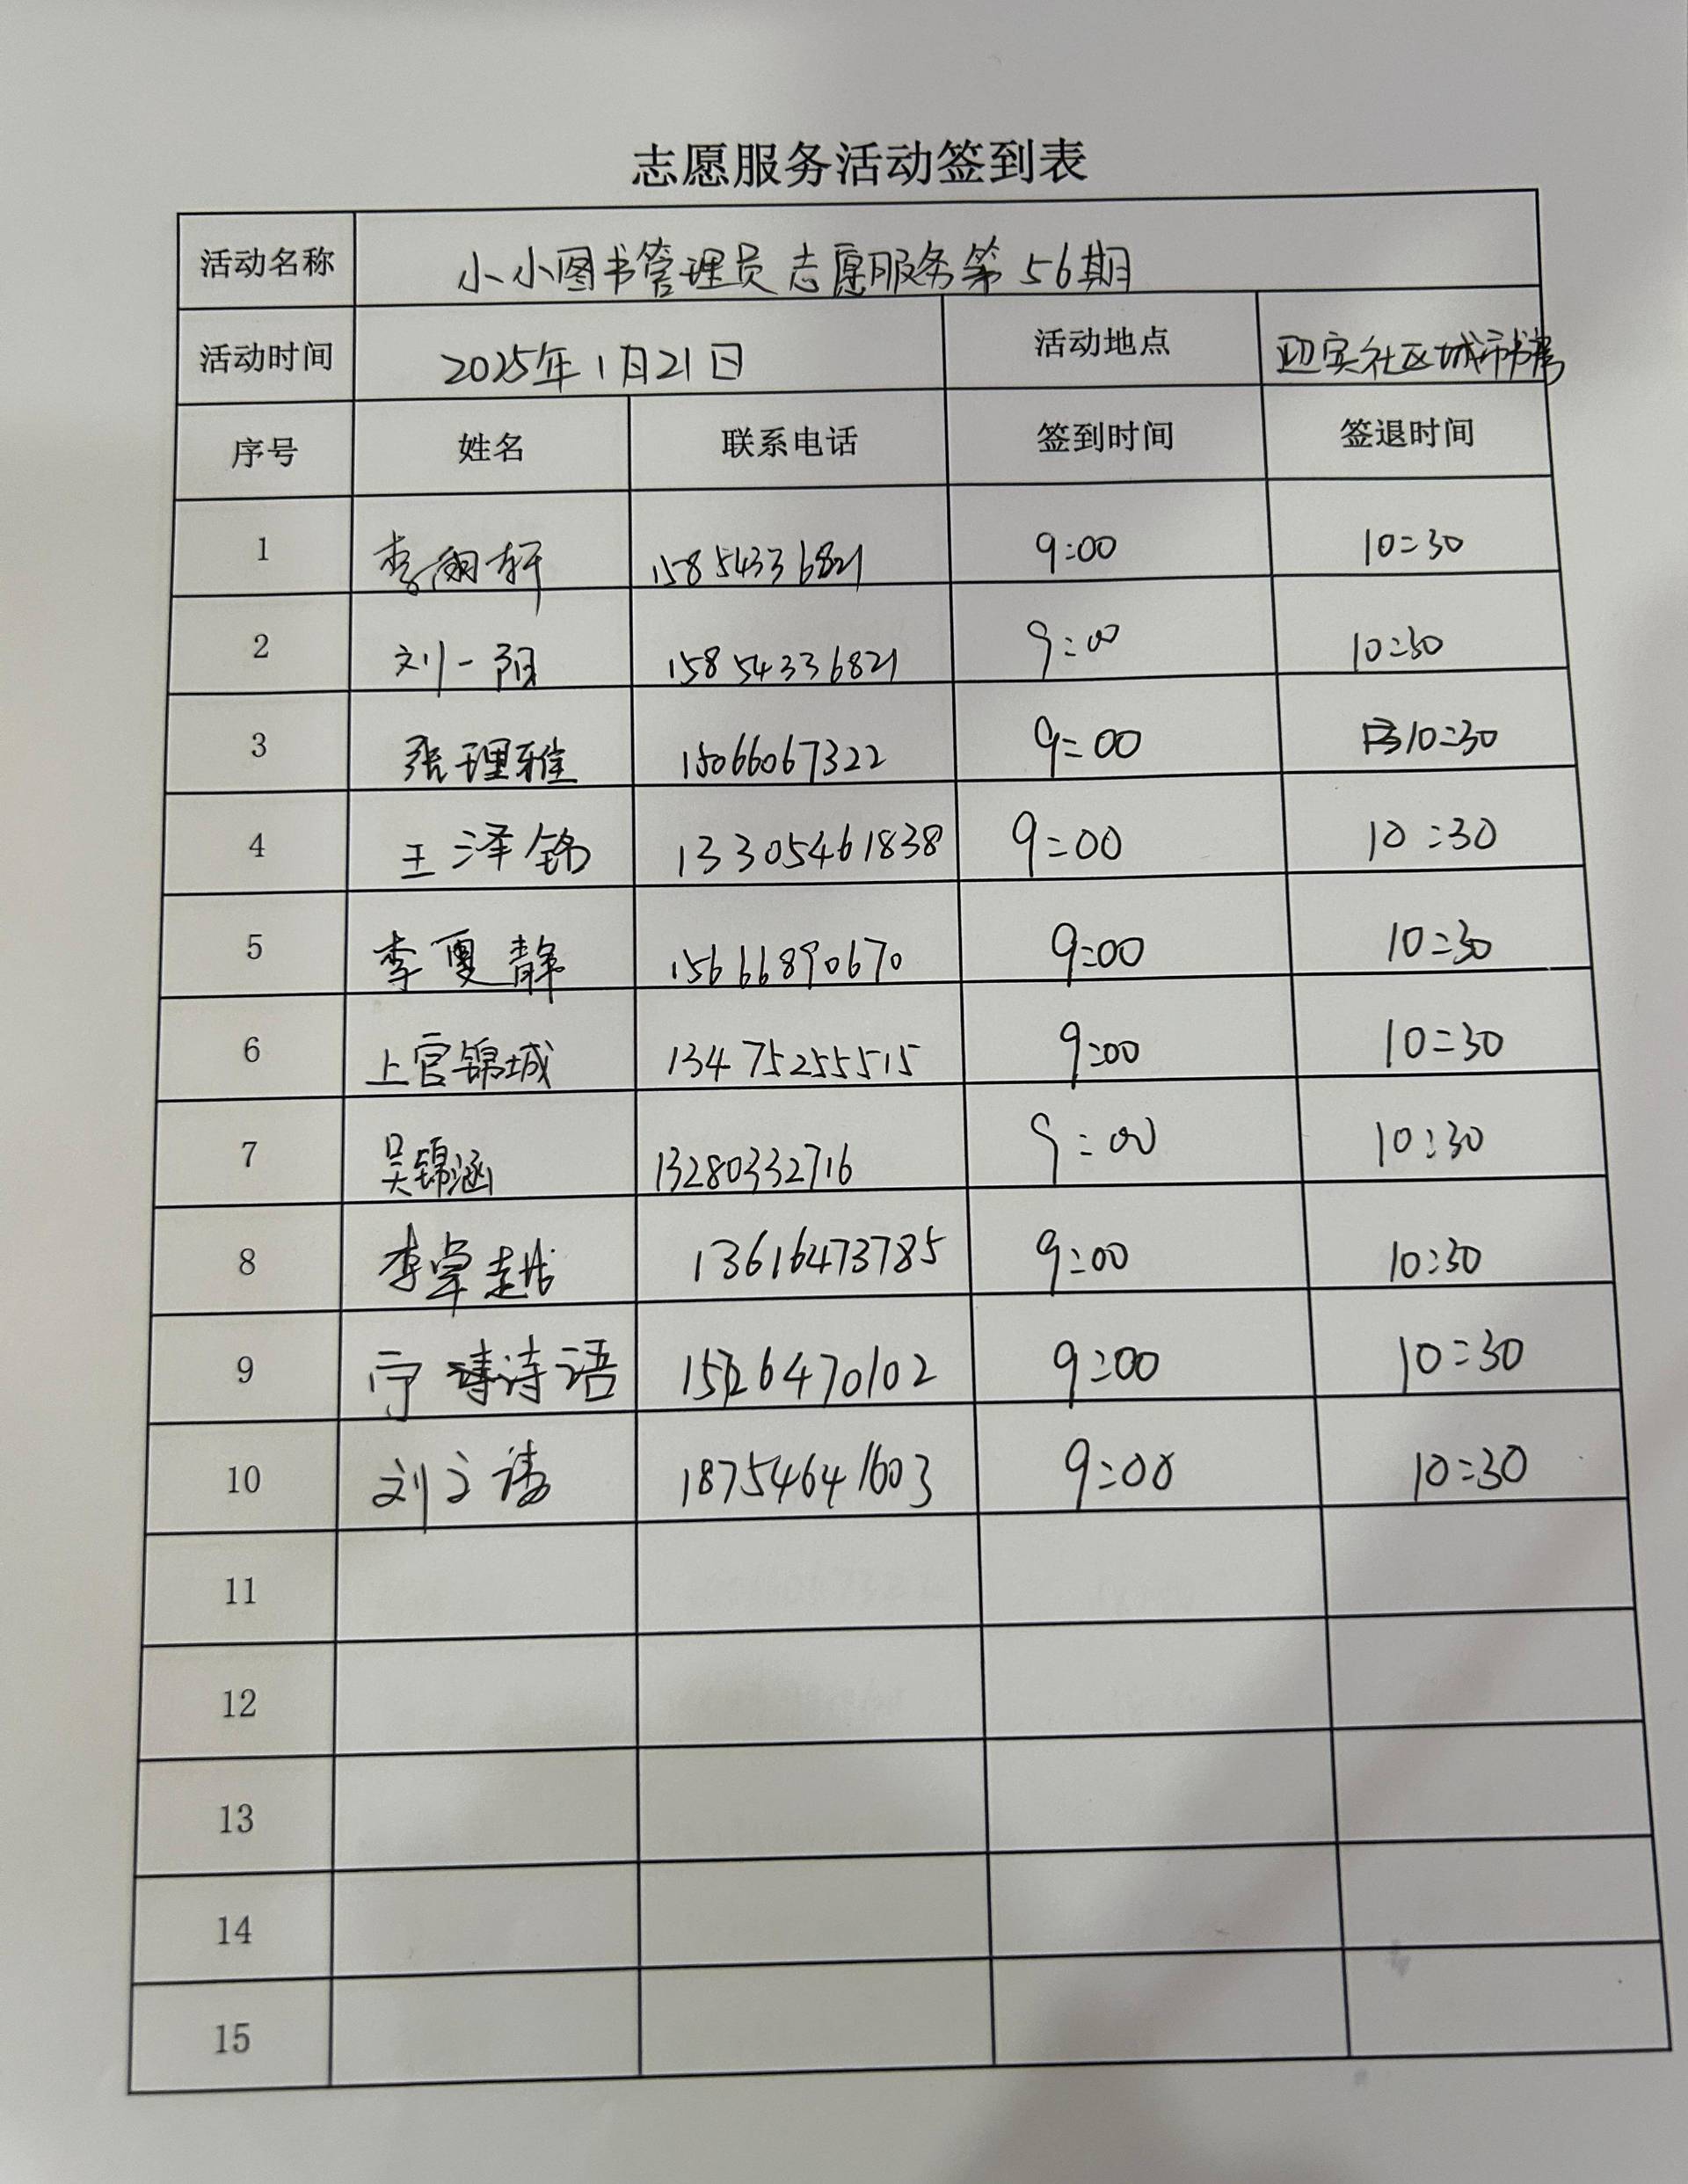 志愿服务活动签到表
活动名称 小小图书管理员志愿服务第56期
活动时间 2025年1月21日 活动地点 迎宾社区城市书房
序号 姓名 联系电话 签到时间 签退时间
1 李雨轩 15854336821 9:00 10:30
2 刘一阳 15854336821 9:00 10:30
3 张理雅 15066067322 9:00 10:30
4 王泽锦 13305461838 9:00 10:30
5 李夏静 15666890670 9:00 10:30
6 上官锦城 13475255515 9:00 10:30
7 吴锦涵 13280332716 9:00 10:30
8 李卓越 13616473785 9:00 10:30
9 宁诗语 9:00 10:30
10 刘 18754641603 9:00 10:30
11
12
13
14
15